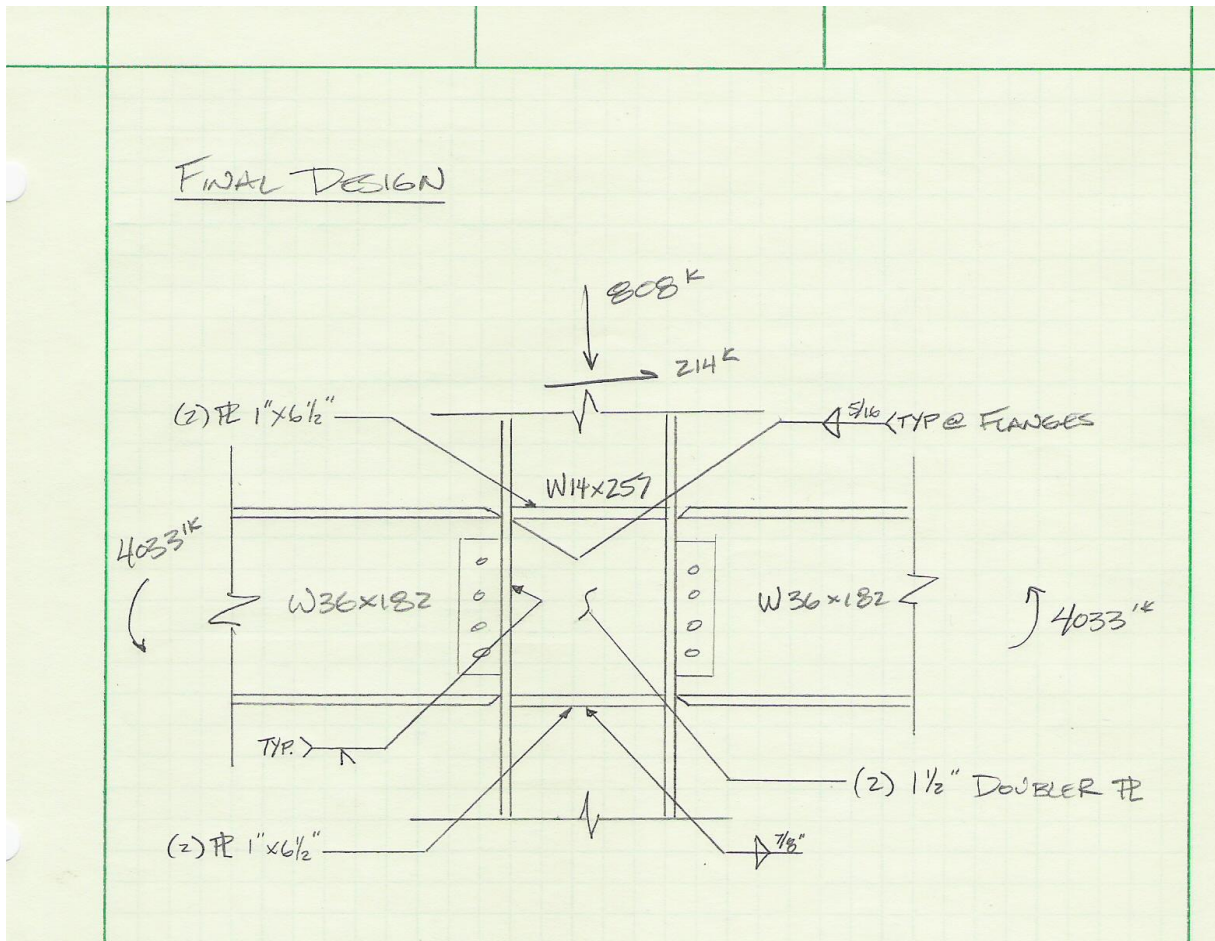 FINAL DESIGN
808ᴷ
214ᴷ
(2) ⅊ 1"x6½"
5/16
TYP @ FLANGES
W14x257
4033'ᴷ
W36x182
W36x182
4033'ᴷ
TYP.
(2) 1½" DOUBLER ⅊
(2) ⅊ 1"x6½"
7/8"